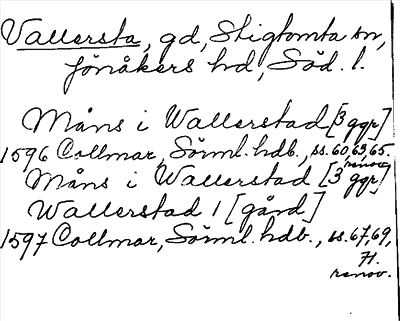 Vallersta, gd, Stigtomta sn,
Jönåkers hd, Söd. l.
Måns i Wallerstad [3 ggr]
1596 Collmar, Sörml. hdb., ss. 60, 63, 65.
renov.
Måns i Wallerstad [3 ggr]
Wallerstad 1 [gård]
1597 Collmar, Sörml. hdb., ss. 67, 69,
71.
renov.